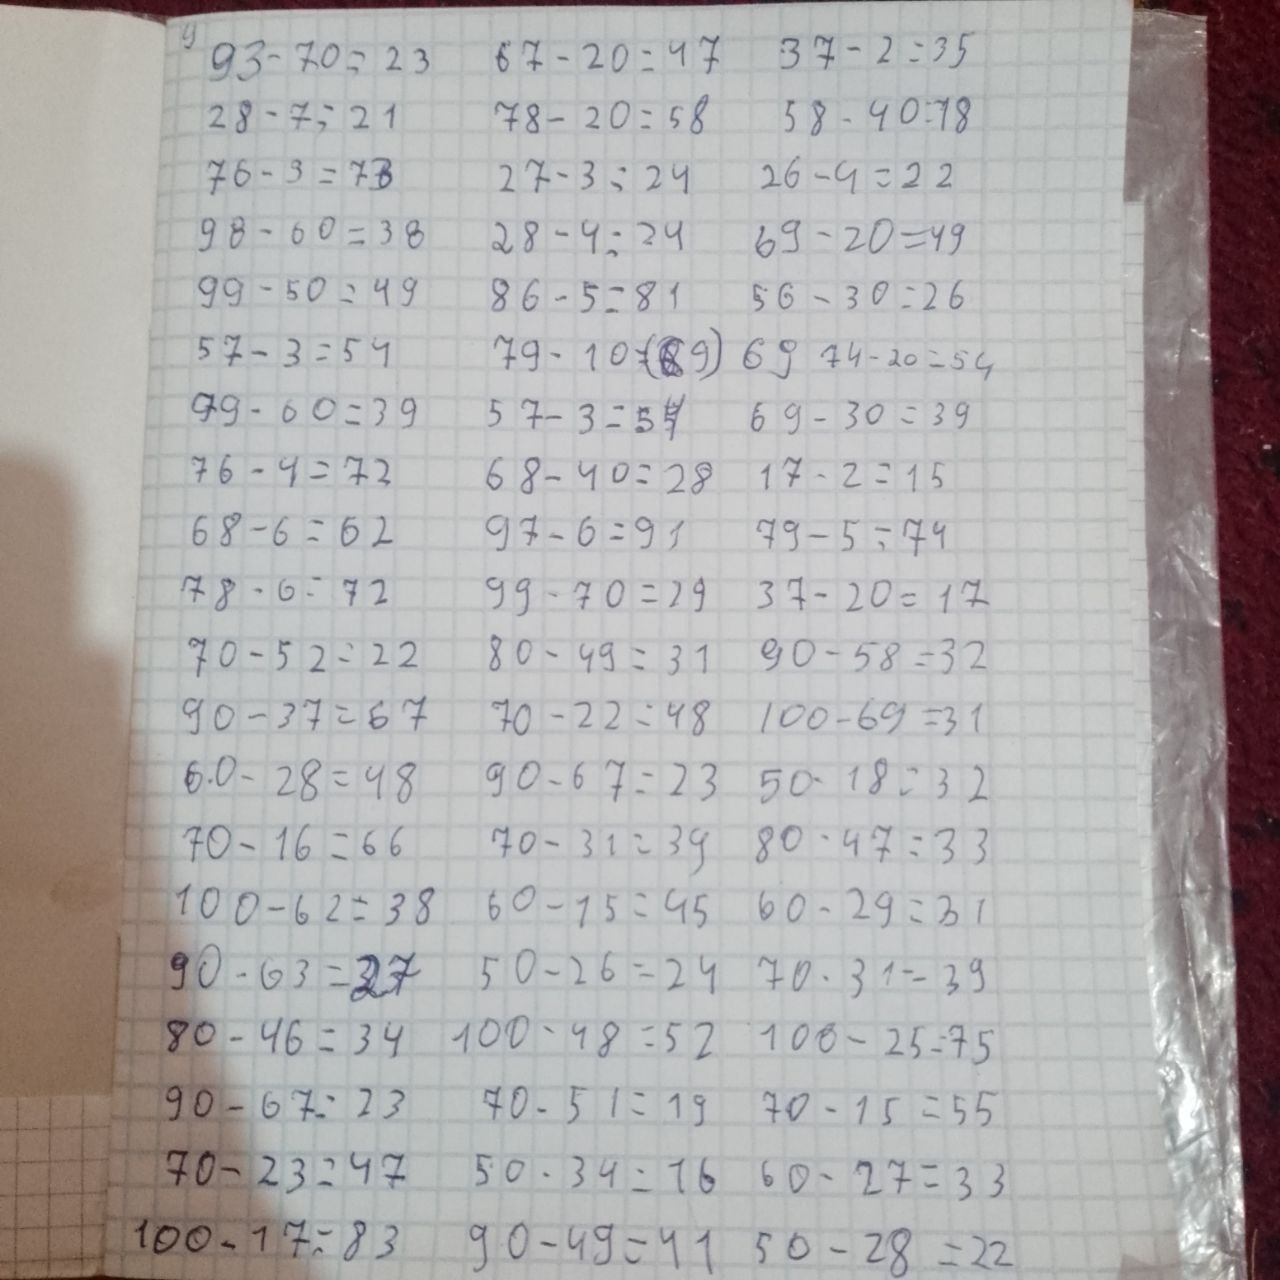 9
93-70=23 67-20=47 37-2=35
28-7=21 78-20=58 58-40=18
76-3=73 27-3=24 26-4=22
98-60=38 28-4=24 69-20=49
99-50=49 86-5=81 56-30=26
57-3=54 79-10=(69) 69 74-20=54
99-60=39 57-3=54 69-30=39
76-4=72 68-40=28 17-2=15
68-6=62 97-6=91 79-5=74
78-6=72 99-70=29 37-20=17
70-52=22 80-49=31 90-58=32
90-37=67 70-22=48 100-69=31
60-28=48 90-67=23 50-18=32
70-16=66 70-31=39 80-47=33
100-62=38 60-15=45 60-29=31
90-63=27 50-26=24 70-31=39
80-46=34 100-48=52 100-25=75
90-67=23 70-51=19 70-15=55
70-23=47 50-34=16 60-27=33
100-17=83 90-49=41 50-28=22